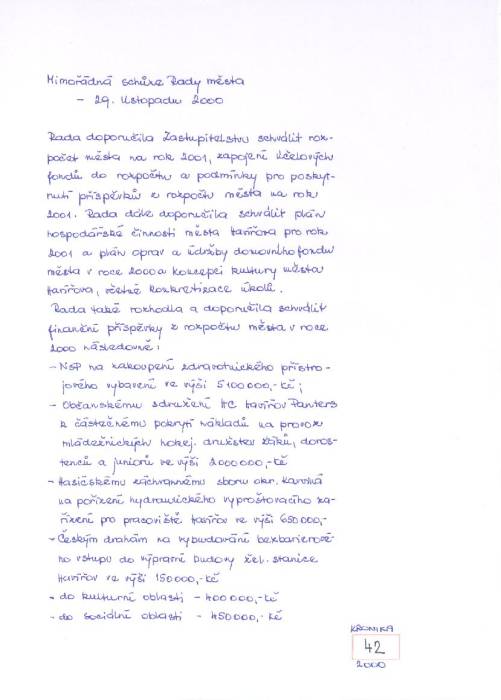 Mimořádná schůze Rady města
- 29. listopadu 2000
Rada doporučila Zastupitelstvu schválit roz-
počet města na rok 2001, zapojení účelových
fondů do rozpočtu a podmínky pro poskyt-
nutí příspěvků z rozpočtu města na rok
2001. Rada dále doporučila schválit plán
hospodářské činnosti města Havířova pro rok
2001 a plán oprav a údržby domovního fondu
města v roce 2000 a koncepci kultury města
Havířova, včetně konkretizace úkolů.
Rada také rozhodla a doporučila schválit
finanční příspěvky z rozpočtu města v roce
2000 následovně:
- NsP na nakoupení zdravotnického přístro-
jového vybavení ve výši 5 100 000,- Kč;
- Občanskému sdružení HC Havířov Panters
k částečnému pokrytí nákladů na provoz
mládežnických hokej. družstev žáků, doros-
tenců a juniorů ve výši 2 000 000,- Kč
- Hasičskému záchrannému sboru okr. Karviná
na pořízení hydraulického vyprošťovacího za-
řízení pro pracoviště Havířov ve výši 650 000,-
- Českým drahám na vybudování bezbariérové-
ho vstupu do výpravní budovy žel. stanice
Havířov ve výši 150 000,- Kč
- do kulturní oblasti - 400 000,- Kč
- do sociální oblasti - 450 000,- Kč
KRONIKA
42
2000